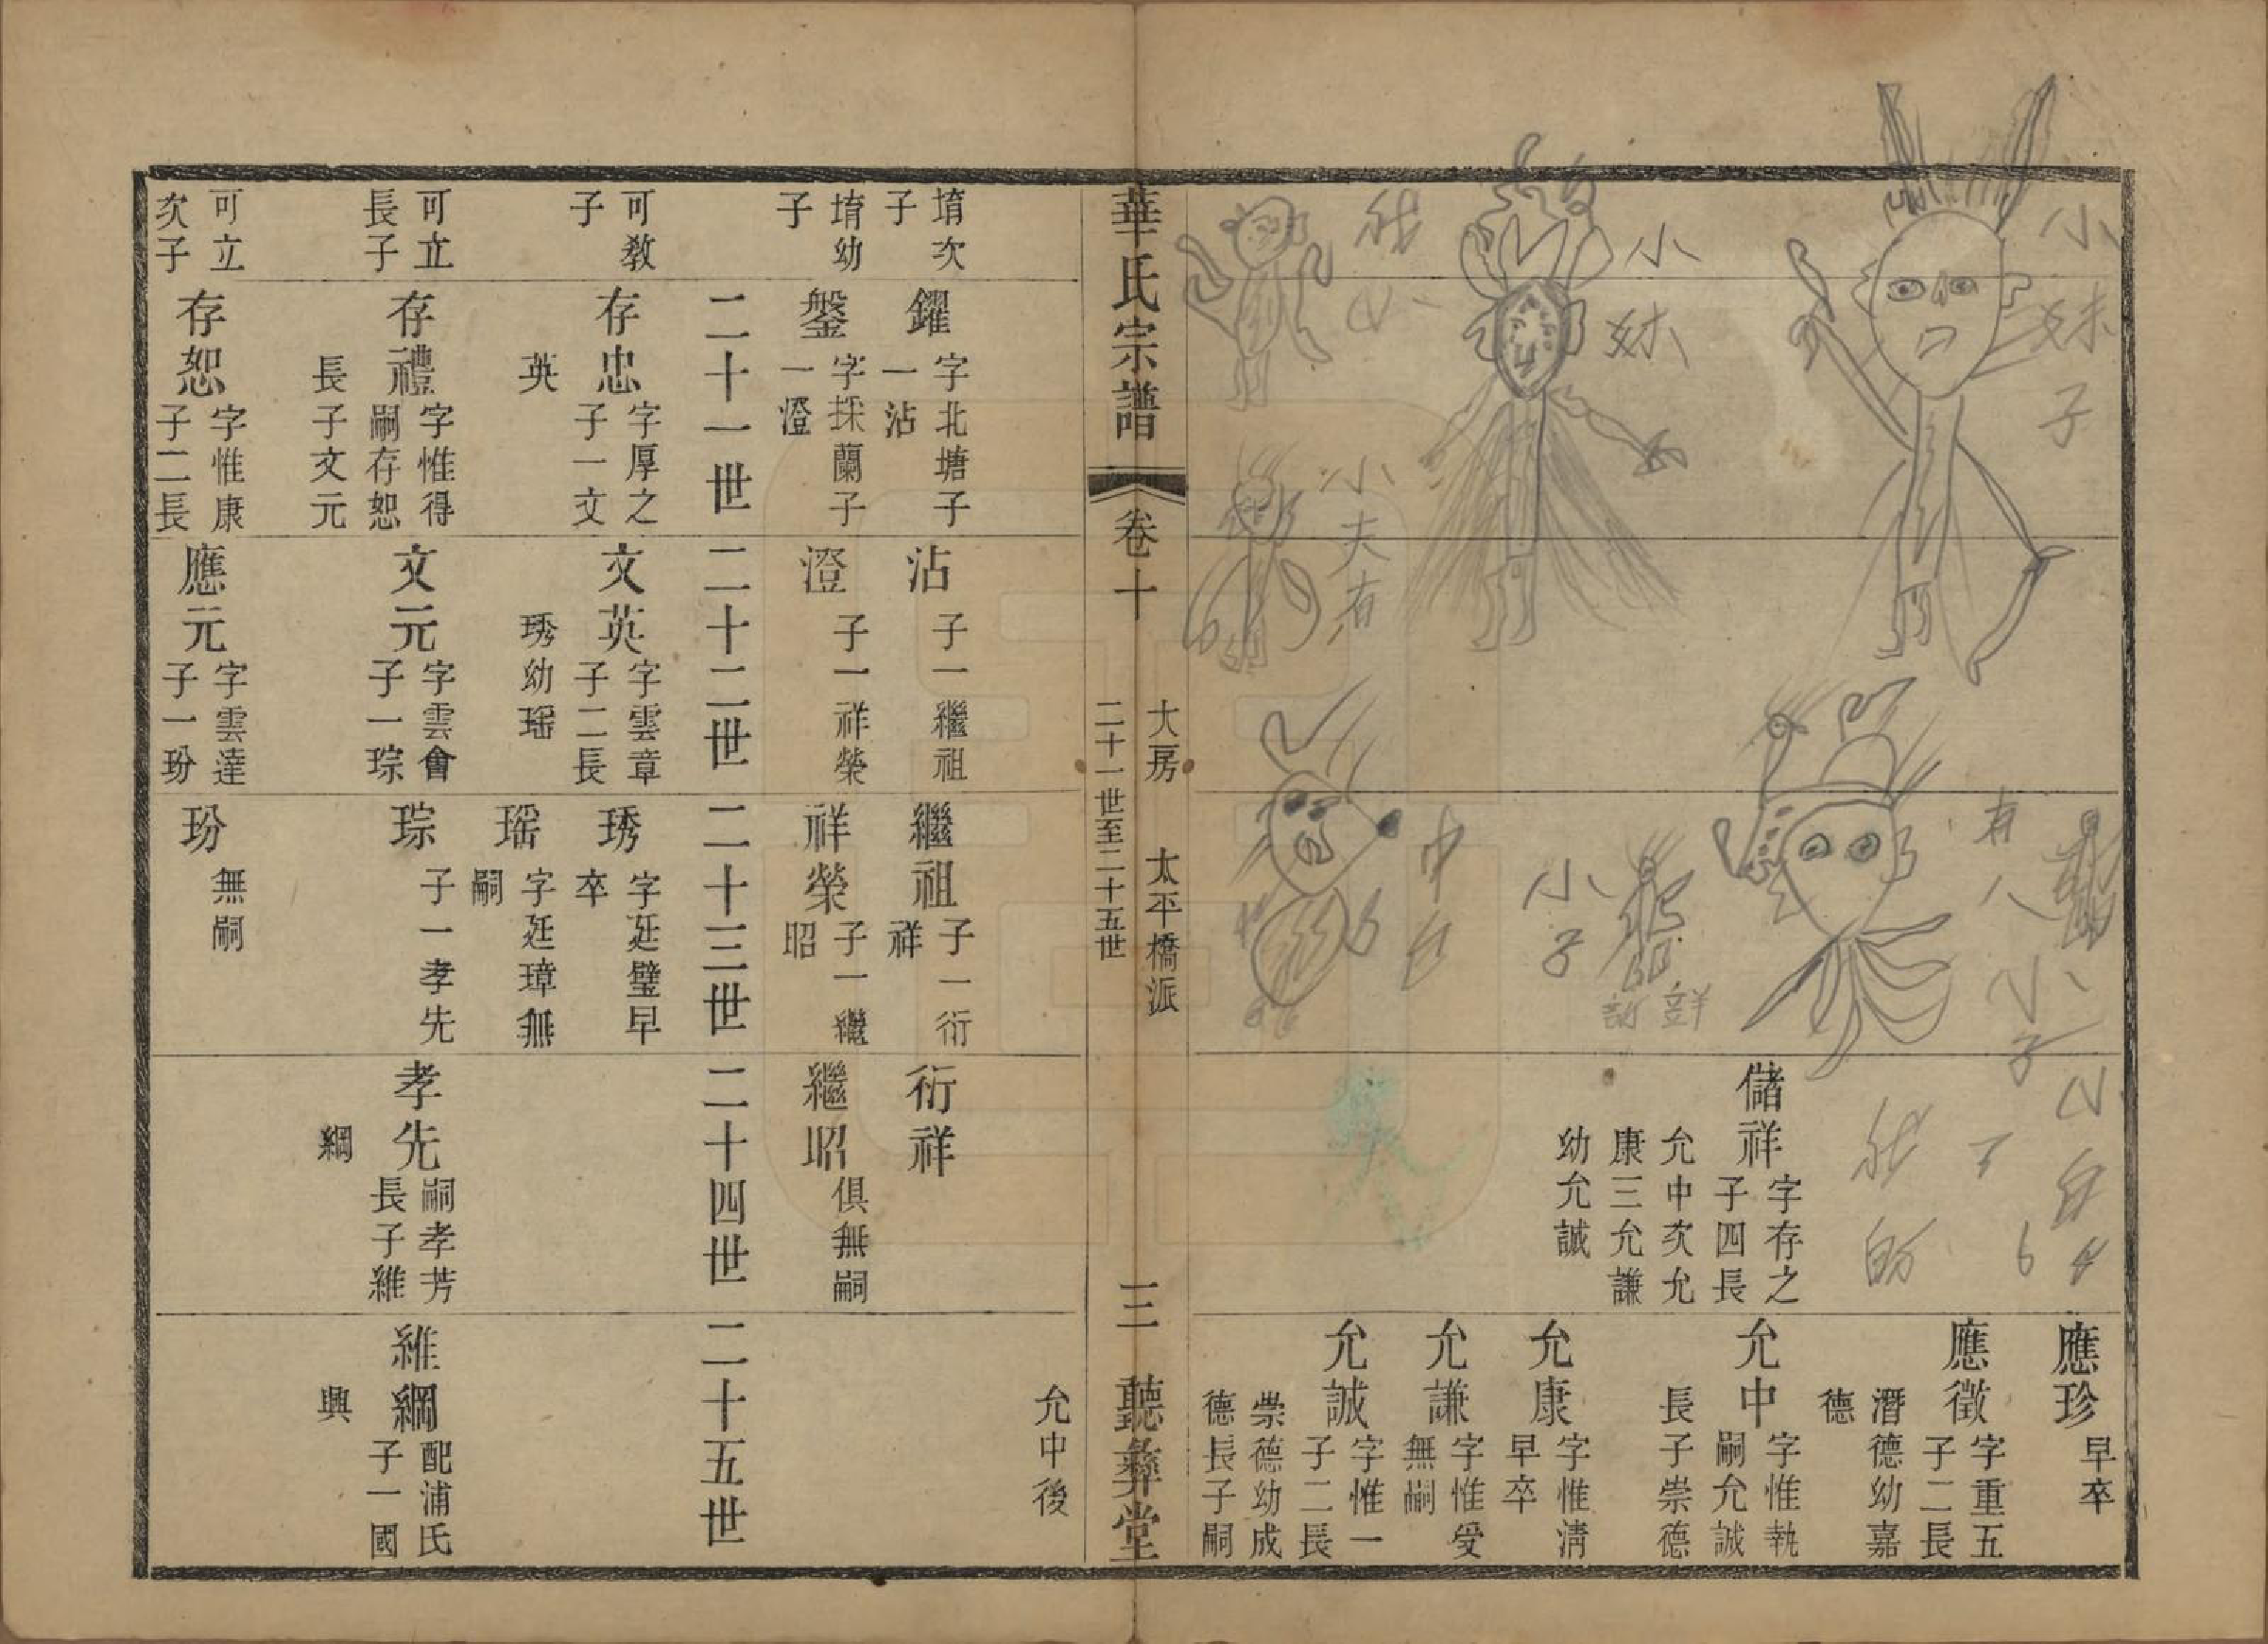 小妹子
小妹
小夫有
中
小子
有人小子
的
儲祥
字存之
子四長
允中次允
康三允謙
幼允誠
應珍
早卒
應徵
字重五
子二長
潛德幼嘉
德
允中
字惟執
嗣允誠
長子崇德
允康
字惟淸
早卒
允謙
字惟受
無嗣
允誠
字惟一
子二長
崇德幼成
德長子嗣
華氏宗譜
卷十
大房 太平橋派
二十一世至二十五世
三
聽彝堂
允中後
堉次
子
鑃
字北塘子
一沾
沾
子一繼祖
繼祖
子一衍
祥
衍祥
堉幼
子
鎜
字採蘭子
一澄
澄
子一祥榮
祥榮
子一繼
昭
繼昭
俱無嗣
二十一世
二十二世
二十三世
二十四世
二十五世
可敎
子
存忠
字厚之
子一文
英
文英
字雲章
子二長
琇幼瑶
琇
字廷璧早
卒
瑶
字廷璋無
嗣
可立
長子
存禮
字惟得
嗣存恕
長子文元
文元
字雲會
子一琮
琮
子一孝先
孝先
嗣孝芳
長子維
綱
維綱
配浦氏
子一國
興
可立
次子
存恕
字惟康
子二長
應元
字雲達
子一玢
玢
無嗣